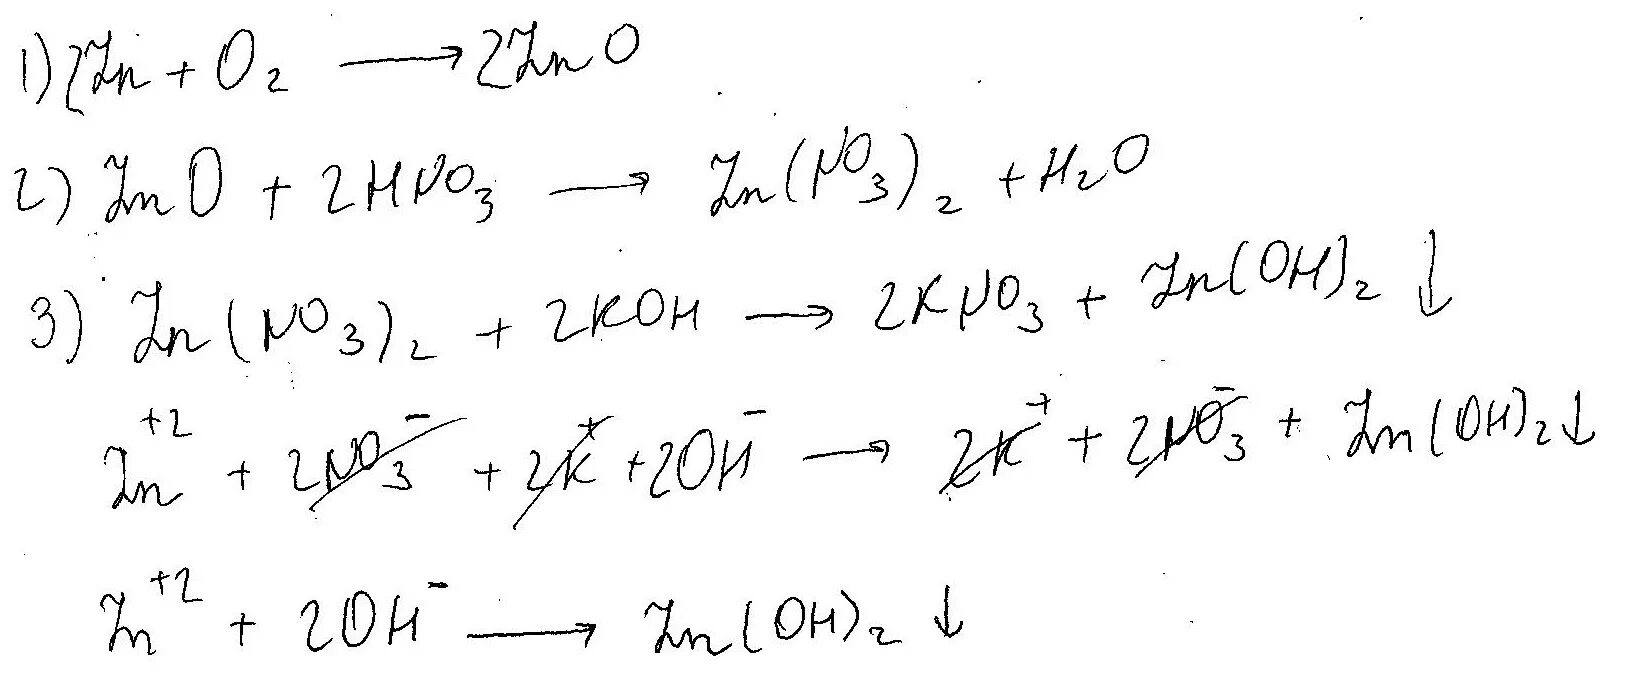 1) 2Zn + O₂ → 2ZnO
2) ZnO + 2HNO₃ → Zn(NO₃)₂ + H₂O
3) Zn(NO₃)₂ + 2KOH → 2KNO₃ + Zn(OH)₂ ↓
Zn⁺² + 2NO₃⁻ + 2K⁺ + 2OH⁻ → 2K⁺ + 2NO₃⁻ + Zn(OH)₂ ↓
Zn⁺² + 2OH⁻ → Zn(OH)₂ ↓